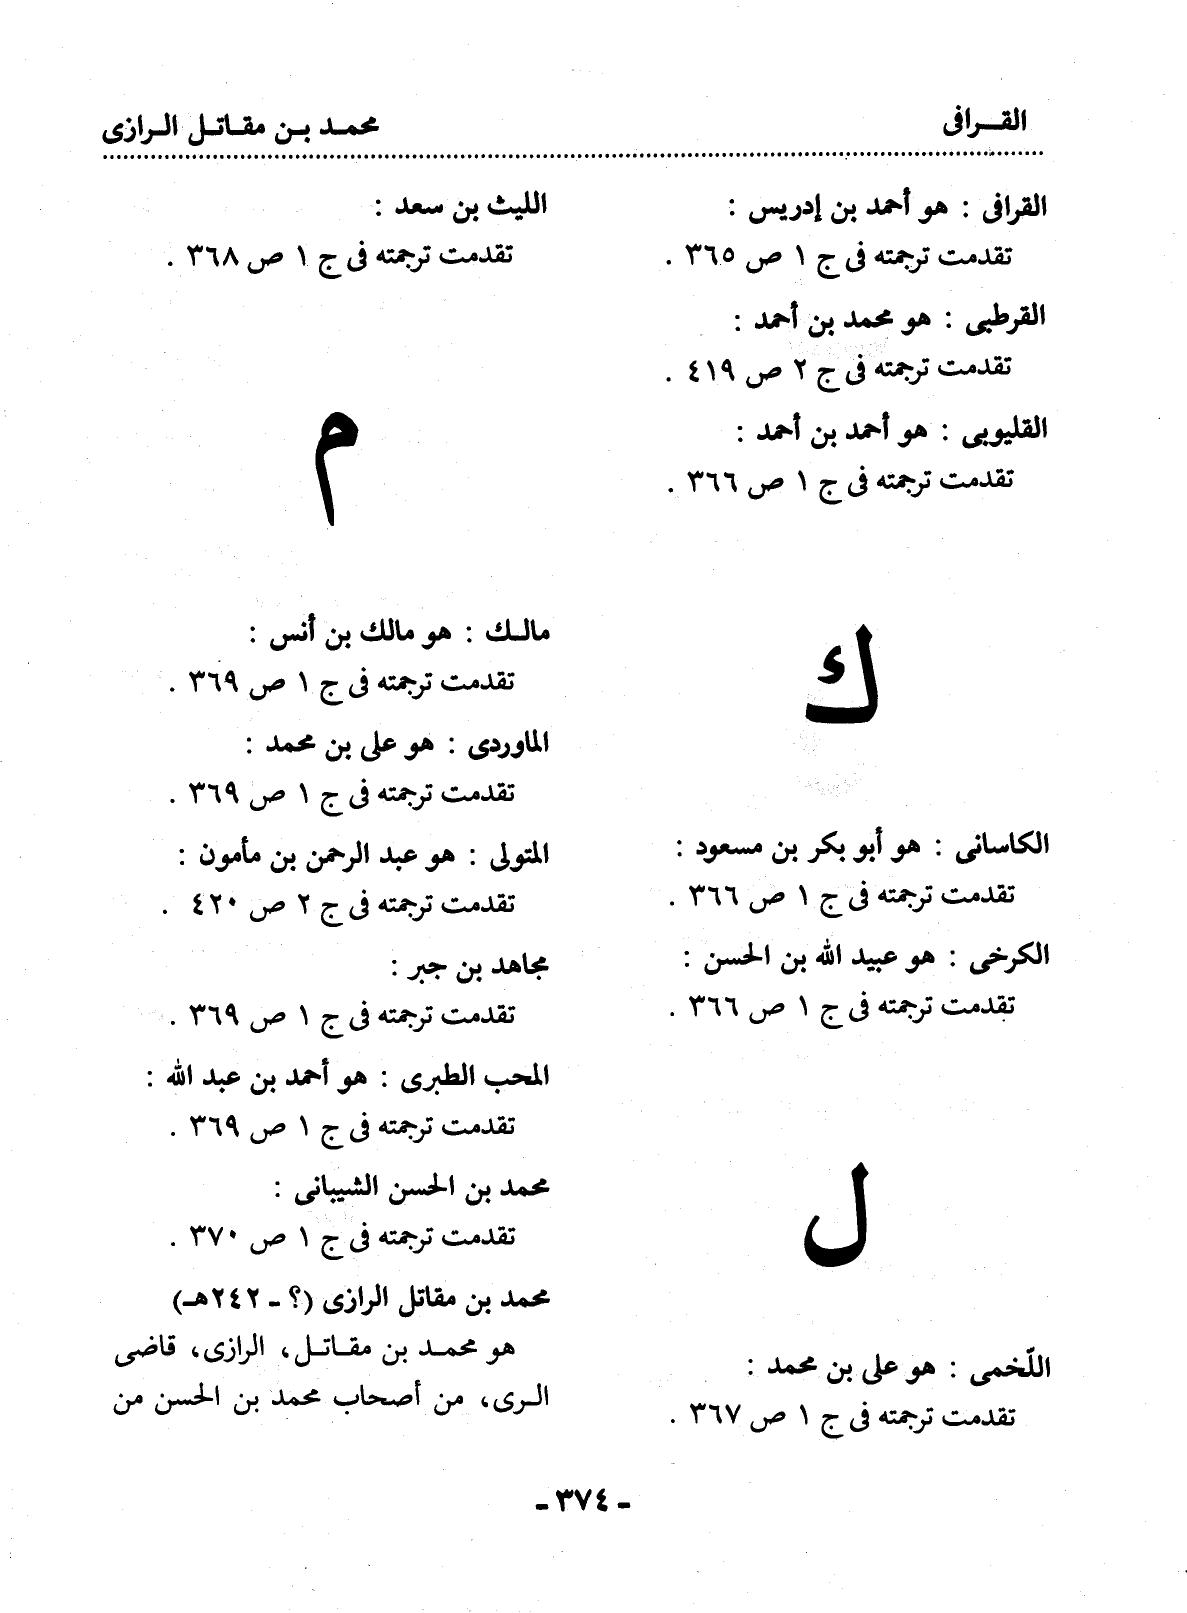 القـــرافى
محمـد بـن مقـاتـل الـرازى
القرافى : هو أحمد بن إدريس :
تقدمت ترجمته فى ج ١ ص ٣٦٥ .
القرطبى : هو محمد بن أحمد :
تقدمت ترجمته فى ج ٢ ص ٤١٩ .
القليوبى : هو أحمد بن أحمد :
تقدمت ترجمته فى ج ١ ص ٣٦٦ .
ك
الكاسانى : هو أبو بكر بن مسعود :
تقدمت ترجمته فى ج ١ ص ٣٦٦ .
الكرخى : هو عبيد الله بن الحسن :
تقدمت ترجمته فى ج ١ ص ٣٦٦ .
ل
اللّخمى : هو على بن محمد :
تقدمت ترجمته فى ج ١ ص ٣٦٧ .
الليث بن سعد :
تقدمت ترجمته فى ج ١ ص ٣٦٨ .
م
مالـك : هو مالك بن أنس :
تقدمت ترجمته فى ج ١ ص ٣٦٩ .
الماوردى : هو على بن محمد :
تقدمت ترجمته فى ج ١ ص ٣٦٩ .
المتولى : هو عبد الرحمن بن مأمون :
تقدمت ترجمته فى ج ٢ ص ٤٢٠ .
مجاهد بن جبر :
تقدمت ترجمته فى ج ١ ص ٣٦٩ .
المحب الطبرى : هو أحمد بن عبد الله :
تقدمت ترجمته فى ج ١ ص ٣٦٩ .
محمد بن الحسن الشيبانى :
تقدمت ترجمته فى ج ١ ص ٣٧٠ .
محمد بن مقاتل الرازى (؟ ـ ٢٤٢هـ)
هو محمـد بن مقـاتـل، الرازى، قاضى
الـرى، من أصحاب محمد بن الحسن من
ـ ٣٧٤ ـ